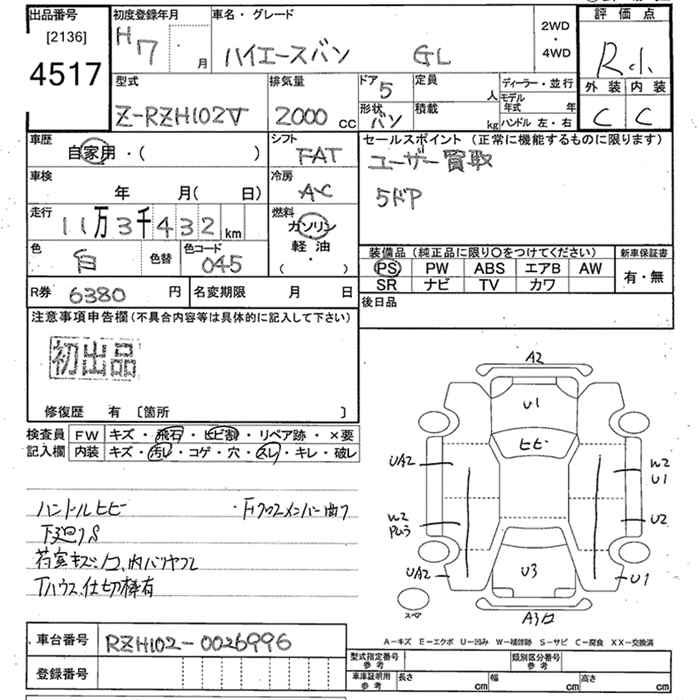 出品番号 初度登録年月 車名・グレード 評価点
[2136] H7 年 ・ 月 ハイエースバン GL 2WD ・ 4WD
4517
型式 排気量 ドア 5 定員 人 ディーラー・並行 外装 内装
Z-RZH102V 2000 CC 形状 バン 積載 kg モデル年式 年 C C
ハンドル 左・右
車歴 シフト セールスポイント (正常に機能するものに限ります)
自家用・( ) FAT ユーザー買取
車検 冷房 5ドア
年 月( 日) AC
走行 燃料
11万3千432km ガソリン
軽油
( ・ )
色 色替 色コード 装備品 (純正品に限り〇をつけてください) 新車保証書
白 045 PS PW ABS エアB AW 有・無
SR ナビ TV カワ
R券 6380 円 名変期限 月 日 後日品
注意事項申告欄(不具合内容等は具体的に記入して下さい)
初出品
修復歴 有 [箇所 ]
検査員 FW キズ・飛石・ヒビ割・リペア跡・×要
記入欄 内装 キズ・汚レ・コゲ・穴・スレ・キレ・破レ
ハンドルヒビ
下廻りS
A2
U1
ヒビ
UA2 W2
U1
W2 U2
UA2 U3 U1
スペア
A-キズ E-エクボ U-凹み W-補修跡 S-サビ C-腐食 XX-交換済
車台番号 RZH102-0026996
登録番号
型式指定番号 参考 類別区分番号 参考
車庫証明用 参考 長さ cm 幅 cm 高さ cm